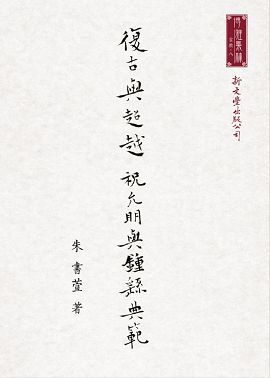 新文豐出版公司
復古與超越
祝允明與鍾繇典範
朱書萱 著